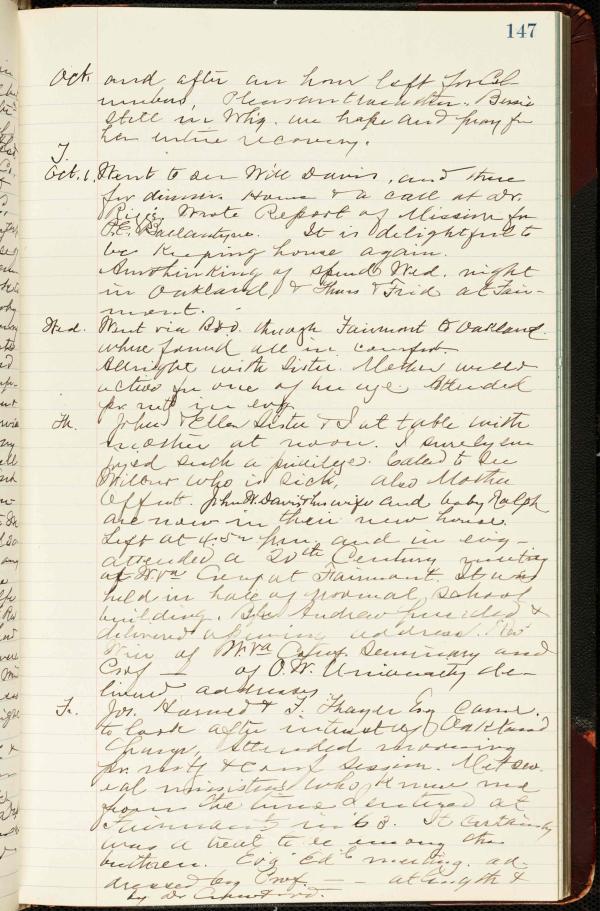 147
Oct. and after an hour left for Col-
umbus, Pleasant weather. Bessie
still in Whg. we hope and pray for
her entire recovery.
T.
Oct. 1. Went to see Will Davis, and there
for dinner. Home & a call at Dr.
Wrote Report of Mission for
P.E. Ballantyne. It is delightful to
be keeping house again.
Am thinking of spend Wed. night
in Oakland, & Thurs & Frid at Fair-
mont.
Wed. Went via B&O. through Fairmont to Oakland.
where found all in comfort.
Allright with Sister. Mother well &
active for one of her age. Attended
pr. mtg in evg.
Th. John & Ella Sister & I at table with
mother at noon. I surely en-
joyed such a privilege. Called to see
Wilbur who is sick, also Mother
Offutt. John W. Davis & his wife and baby Ralph
are now in their new house.
Left at 4.52 p.m. and in evg-
attended a 20th Century meeting
of W.Va Conf at Fairmont. It was
held in hall of normal school
building. Bp Andrew presided &
delivered address. Rev
of W.Va Conf. Seminary and
Prof — of O.W. University de-
livered addresses
Fr. Jos. Harned & T. Thayer Esq came.
to look after interest of Oakland
Charge, Attended morning
pr. mtg & conf session. Met sev-
eral ministers who knew me
from the time I entered at
Fairmont in '68. It certainly
was a treat to be among the
brethren. Evg Ed'l meeting. ad-
dressed by Prof. — — at length &
by Dr Crawford.